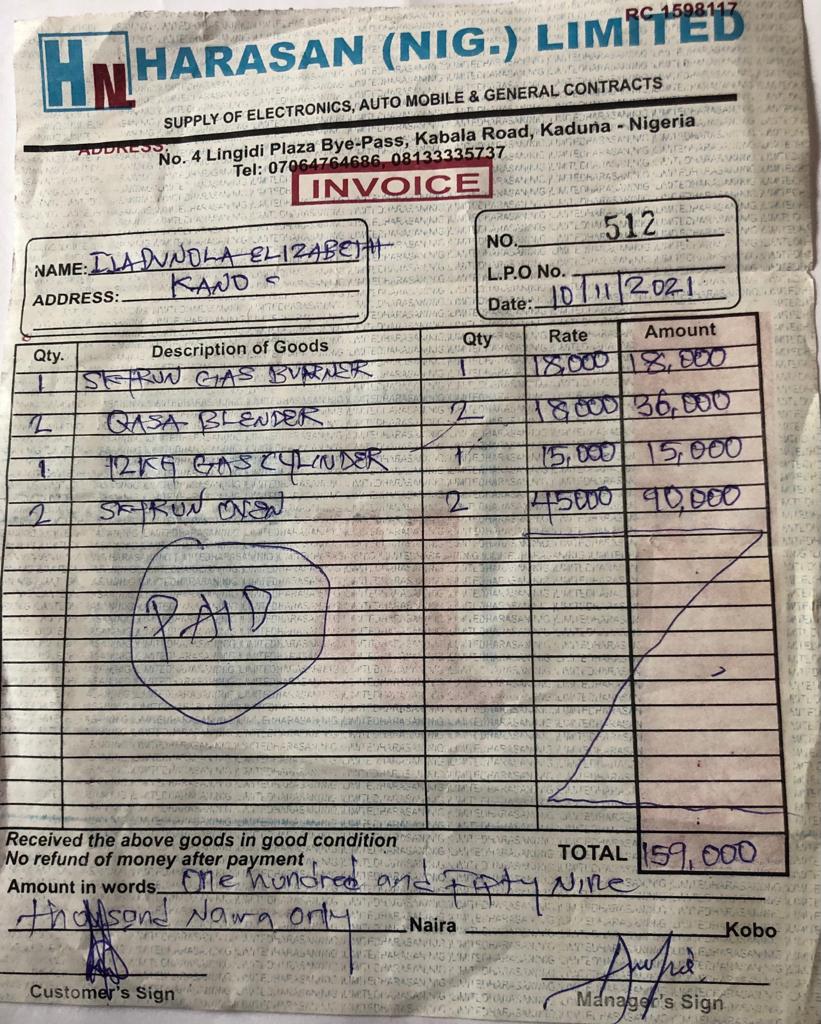 RC 1598117
HN HARASAN (NIG.) LIMITED
SUPPLY OF ELECTRONICS, AUTO MOBILE & GENERAL CONTRACTS
ADDRESS: No. 4 Lingidi Plaza Bye-Pass, Kabala Road, Kaduna - Nigeria
Tel: 07064764686, 08133335737
INVOICE
NAME: ELIZABETH
ADDRESS: KANO
NO. 512
L.P.O No.
Date: 10/11/2021
Qty. Description of Goods Qty Rate Amount
1 GAS BURNER 1 18,000 18,000
2 QASA BLENDER 2 18000 36,000
1 12KG GAS CYLINDER 1 15,000 15,000
2 OVEN 2 45000 90,000
PAID
Received the above goods in good condition
No refund of money after payment
TOTAL 159,000
Amount in words One hundred and Fifty Nine
thousand Naira only Naira Kobo
Customer's Sign
Manager's Sign